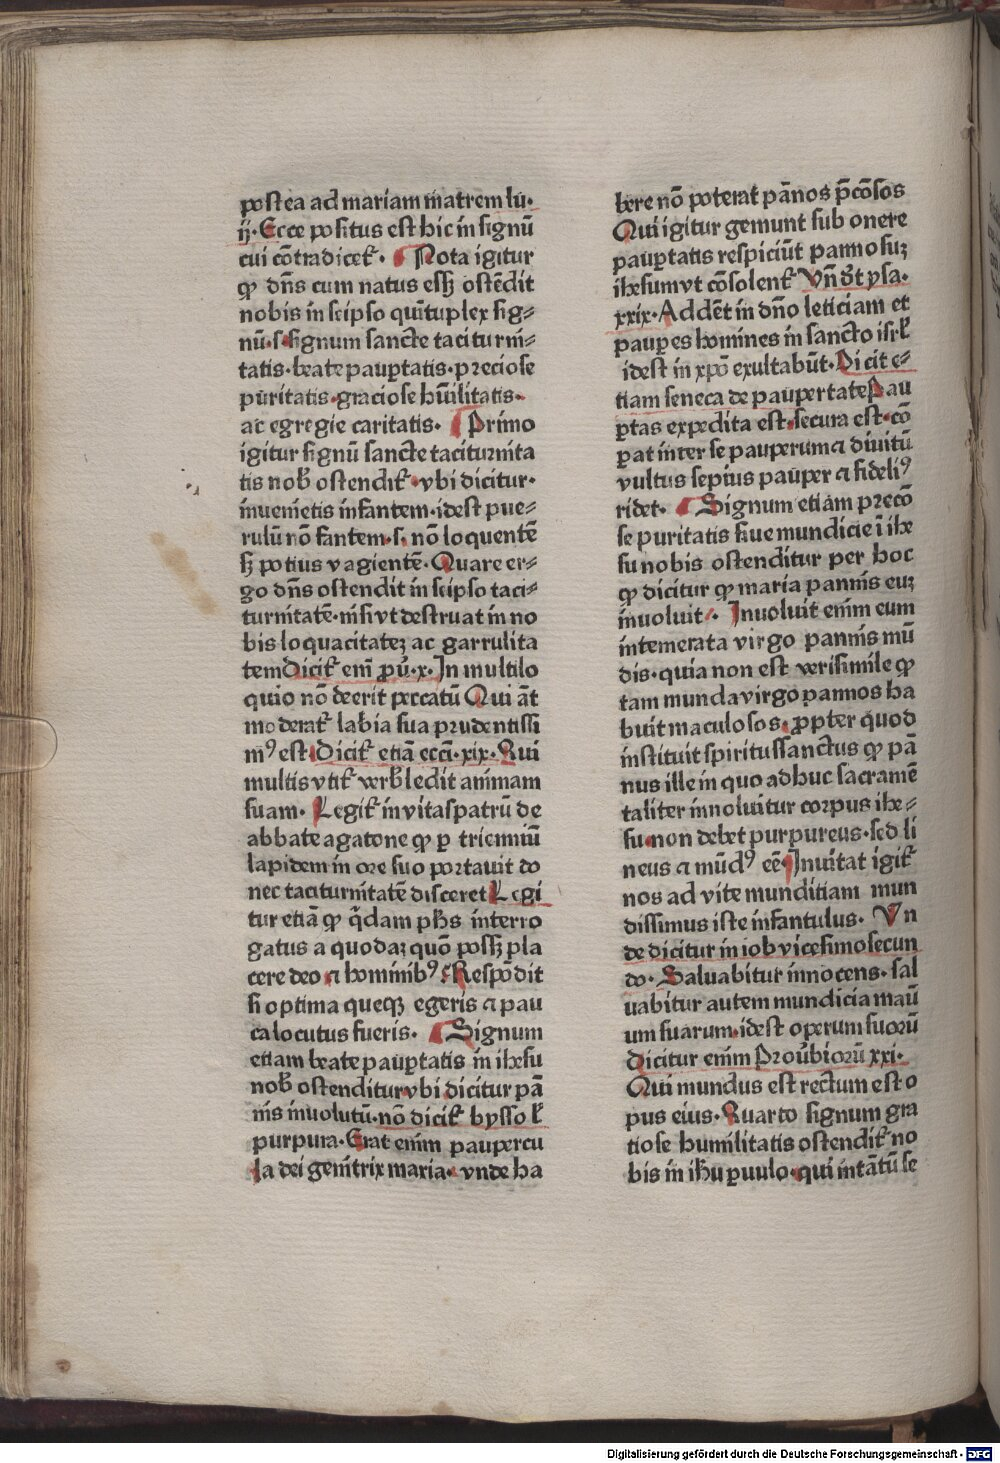 postea ad mariam matrem lu·
ij· Ecce positus est hic in signū
cui cōtradicet᷑· Nota igitur
ꝙ dn̄s cum natus essꝫ ostēdit
nobis in seipso quītuplex sig⸗
nū·s·signum sancte taciturni⸗
tatis·beate paup̄tatis·preciose
puritatis·graciose hūilitatis·
ac egregie caritatis· Primo
igitur signū sancte taciturnita
tis nob̄ ostendit᷑·vbi dicitur·
inuenietis infantem·idest pue⸗
rulū nō fantem·s·nō loquentē
sꝫ potius vagientē·Quare er⸗
go dn̄s ostendit in seipso taci⸗
turnitatē·nisi vt destruat in no
bis loquacitatez ac garrulita
tem Dicit᷑ em̄ ꝓū·x·In multilo
quio nō deerit peccatū Qui āt
moderat᷑ labia sua prudentissi
mꝰ est·Dicit᷑ etiā ecci·xix·Qui
multis vtit᷑ verb̄ ledit animam
suam· Legit᷑ in vitaspatrū de
abbate agatone ꝙ ꝑ trienniū
lapidem in ore suo portauit do
nec taciturnitatē disceret Legi
tur etiā ꝙ q̄dam ph̄s interro
gatus a quodaz quō possꝫ pla
cere deo ⁊ hominibꝰ Respōdit
si optima queqꝫ egeris ⁊ pau
ca locutus fueris· Signum
etiam beate paup̄tatis in ihesu
nob̄ ostenditur vbi dicitur pā
nis inuolutū·nō dicit᷑ bysso ł
purpura·Erat enim paupercu
la dei genitrix maria· vnde ha
bere nō poterat pānos p̄cōsos
Qui igitur gemunt sub onere
pauꝑtatis respiciūt pannosuz
ihesum vt cōsolent᷑ Vn̄ d̄t ysa·
xxix·Addēt in dn̄o leticiam et
pauꝑes homines in sancto isrł
idest in xp̄o exultabūt·Dicit e⸗
tiam seneca de paupertate Pau
ꝑtas expedita est·secura est·cō
ꝑat inter se pauperum ⁊ diuitū
vultus sepius pauper ⁊ fideliꝰ
ridet· Signum etiam precō
se puritatis siue mundicie ī ihe
su nobis ostenditur per hoc
ꝙ dicitur ꝙ maria pannis euz
inuoluit· Inuoluit enim eum
intemerata virgo pannis mū
dis·quia non est verisimile ꝙ
tam munda virgo pannos ha
buit maculosos·ꝓpter quod
instituit spiritussanctus ꝙ pā
nus ille in quo adhuc sacramē
taliter innoluitur corpus ihe⸗
su·non debet purpureus·sed li
neus ⁊ mūdꝰ eē·Inuitat igit᷑
nos ad vite munditiam mun
dissimus iste infantulus· Vn
de dicitur in iob vicesimosecun
do· Saluabitur innocens·sal
uabitur autem mundicia maū
um suarum·idest operum suorū
dicitur enim Proub̄iorū xxi·
Qui mundus est rectum est o
pus eius·Quarto signum gra
tiose humilitatis ostendit᷑ no
bis in ih̄u ꝑuulo·qui intātū se
Digitalisierung gefördert durch die Deutsche Forschungsgemeinschaft - DFG